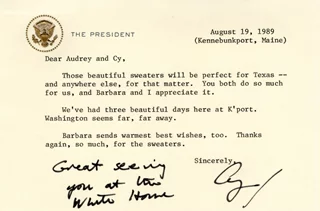 THE PRESIDENT
August 19, 1989
(Kennebunkport, Maine)
Dear Audrey and Cy,
Those beautiful sweaters will be perfect for Texas --
and anywhere else, for that matter. You both do so much
for us, and Barbara and I appreciate it.
We've had three beautiful days here at K'port.
Washington seems far, far away.
Barbara sends warmest best wishes, too. Thanks
again, so much, for the sweaters.
Sincerely,
Great seeing
you at the
White House